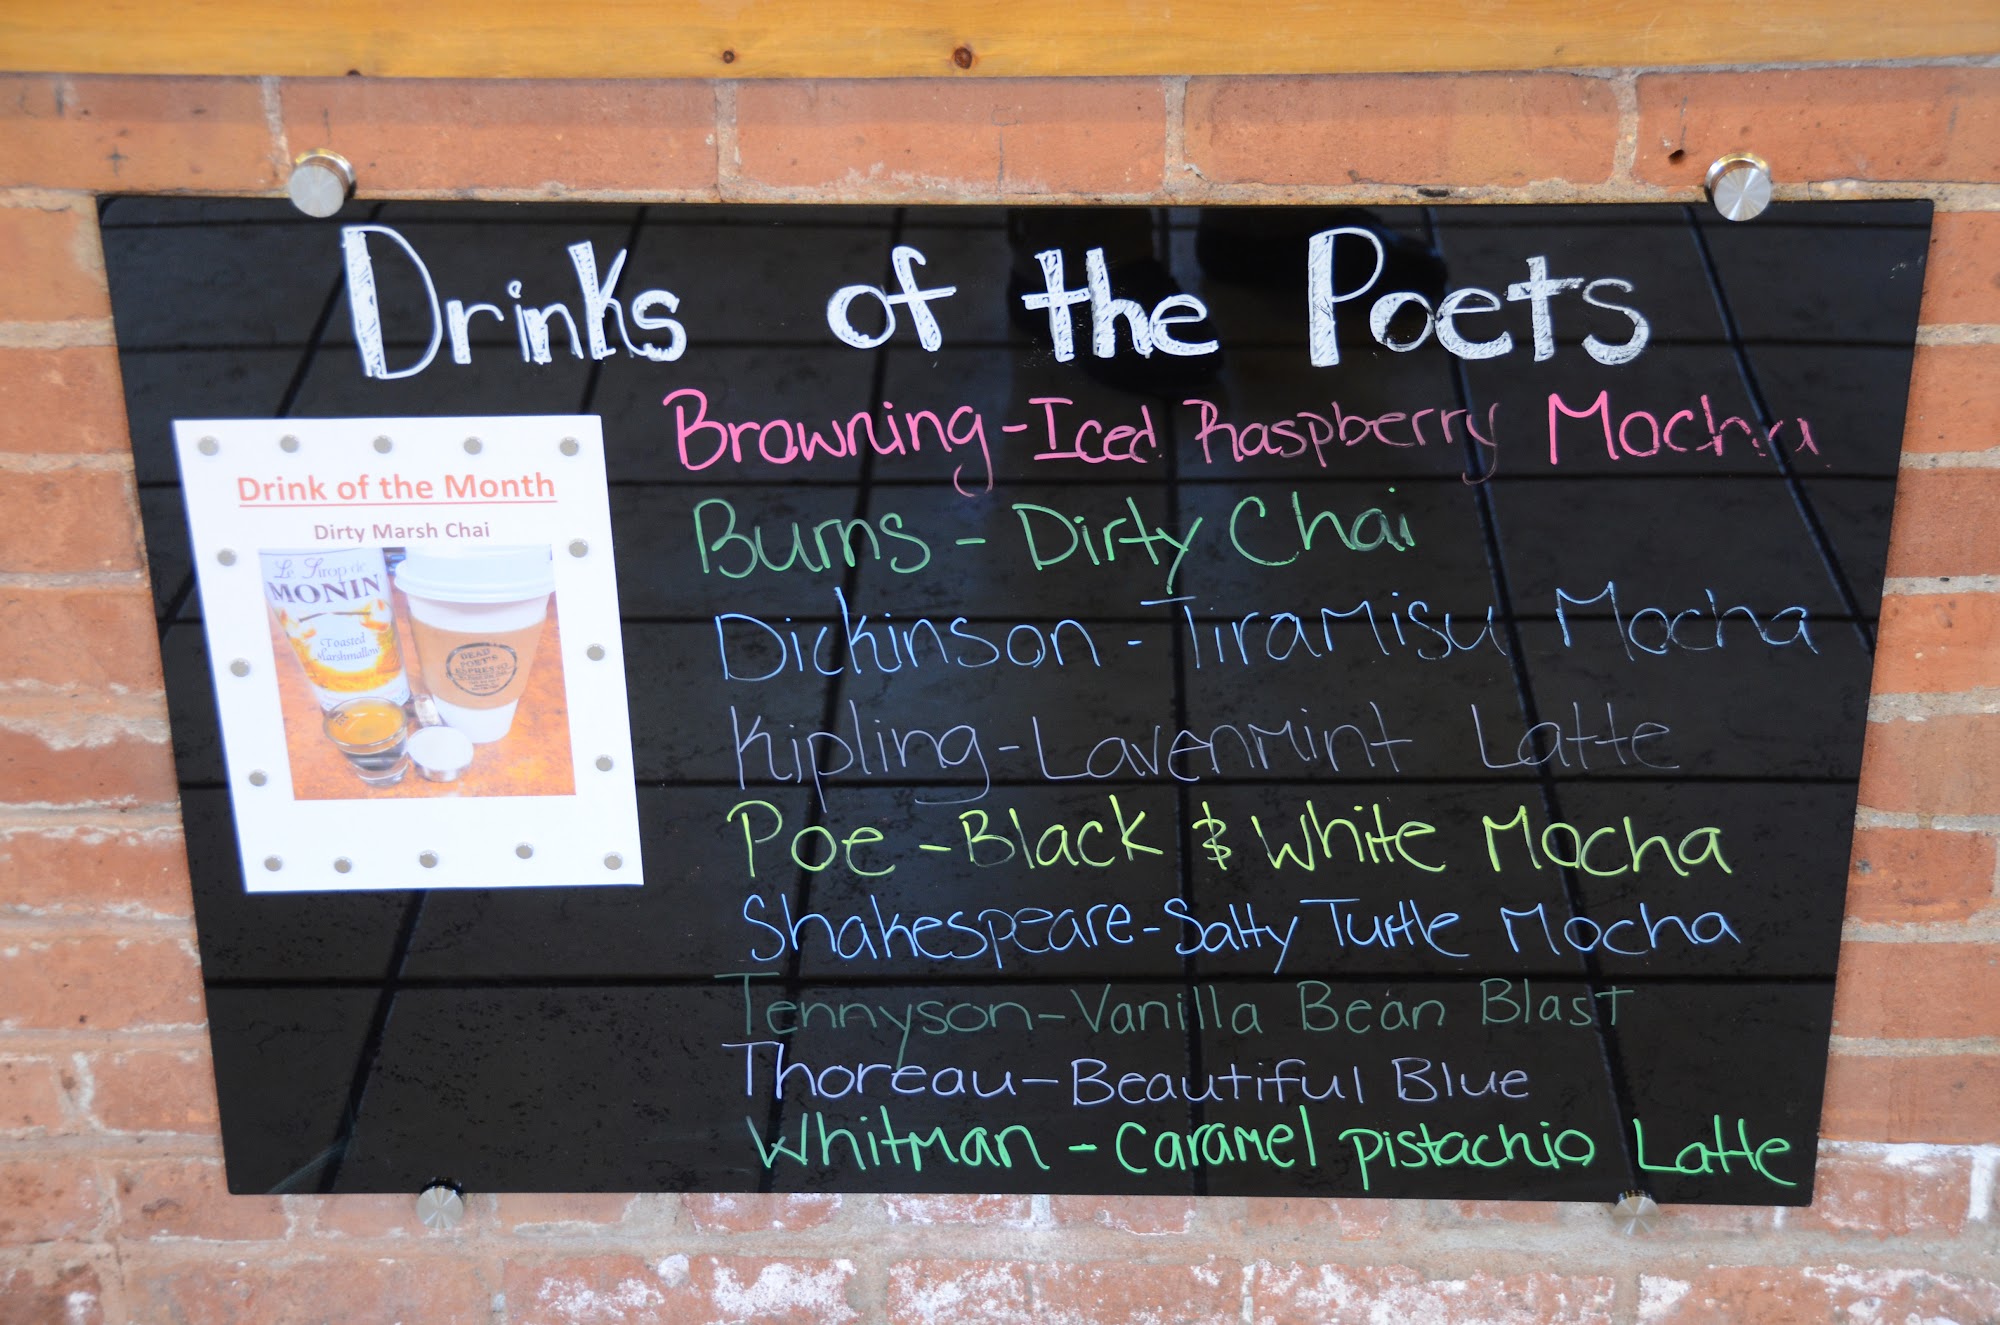 Drinks of the Poets
Browning - Iced Raspberry Mocha
Burns - Dirty Chai
Dickinson - Tiramisu Mocha
Kipling - Lavenmint Latte
Poe - Black & White Mocha
Shakespeare - Salty Turtle Mocha
Tennyson - Vanilla Bean Blast
Thoreau - Beautiful Blue
Whitman - Caramel Pistachio Latte
Drink of the Month
Dirty Marsh Chai
Le Sirop de
MONIN
Toasted
Marshmallow
DEAD
POET'S
ESPRESSO